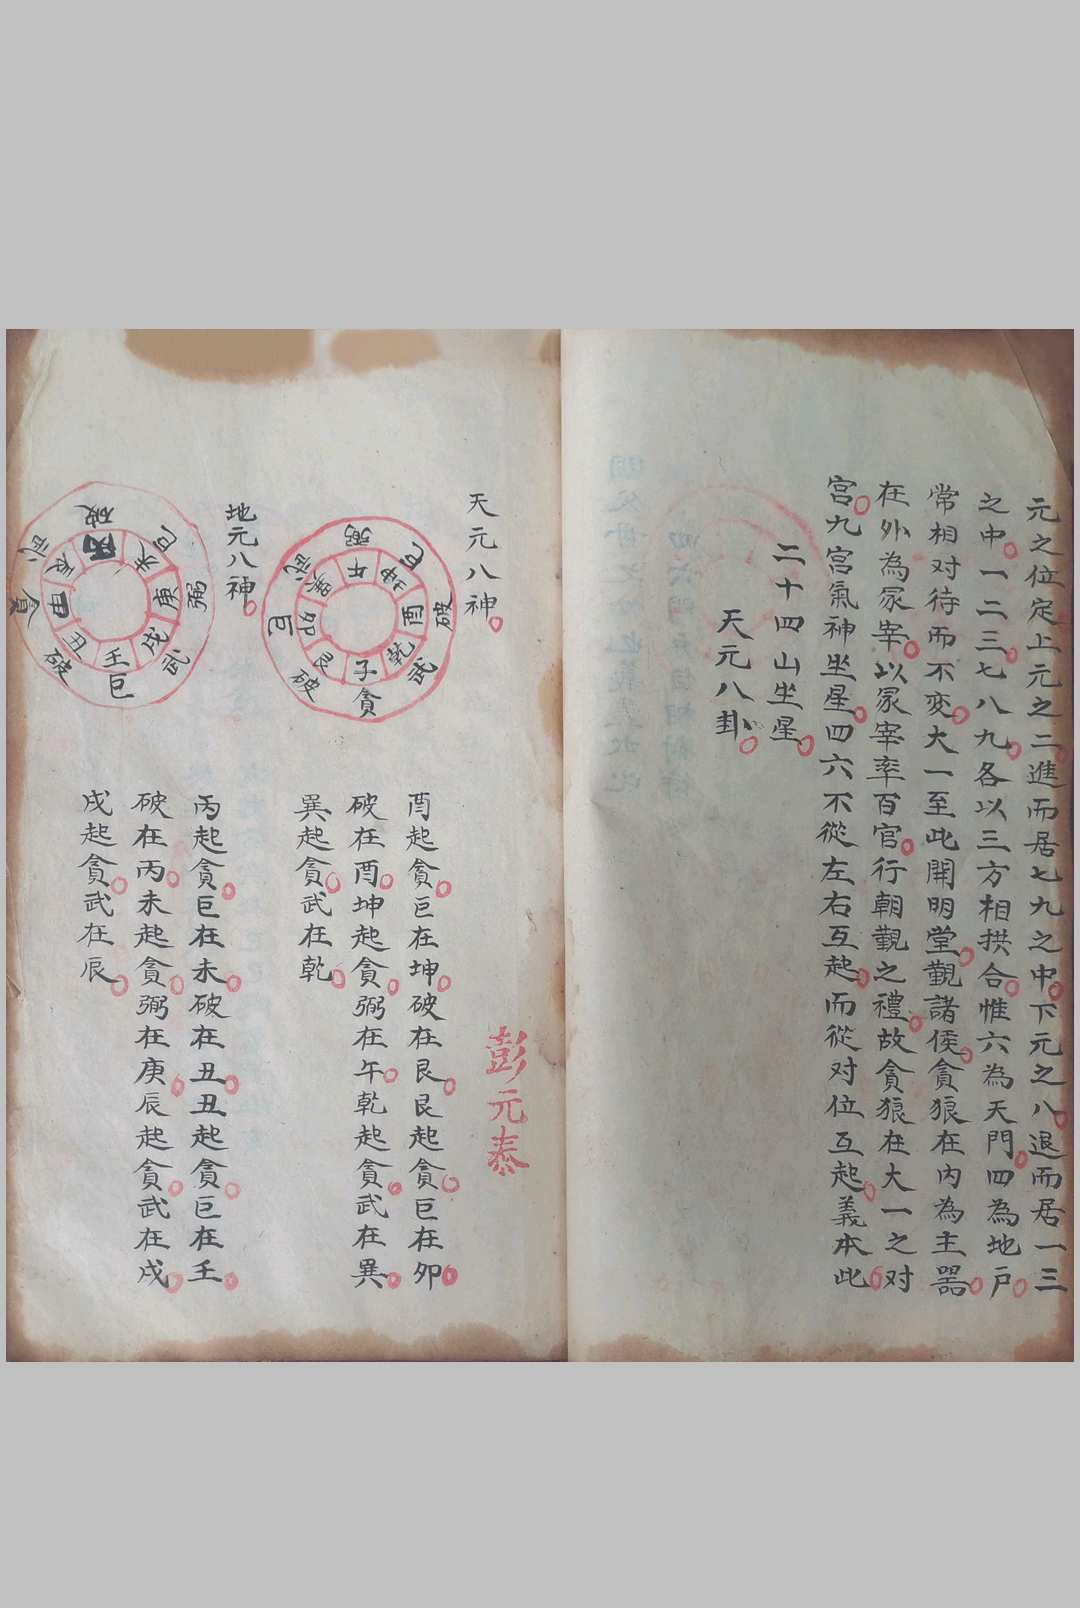 元之位定上元之二進而居七九之中下元之八退而居一三
之中一二三七八九各以三方相拱合惟六為天門四為地户
常相对待而不变大一至此開明堂觐諸侯貪狼在内為主器
在外為冢宰以冢宰率百官行朝觐之禮故貪狼在大一之对
宫九宫氣神坐星四六不從左右互起而從对位互起義本此
二十四山坐星
天元八卦
彭元泰
天元八神
子
貪
乾
武
酉
破
坤
巳
午
弼
巽
武
卯
巨
艮
破
酉起貪巨在坤破在艮艮起貪巨在卯
破在酉坤起貪弼在午乾起貪武在巽
巽起貪武在乾
地元八神
壬
巨
戌
武
庚
弼
未
巳
丙
破
辰
武
甲
貪
丑
破
丙起貪巨在未破在丑丑起貪巨在壬
破在丙未起貪弼在庚辰起貪武在戌
戌起貪武在辰